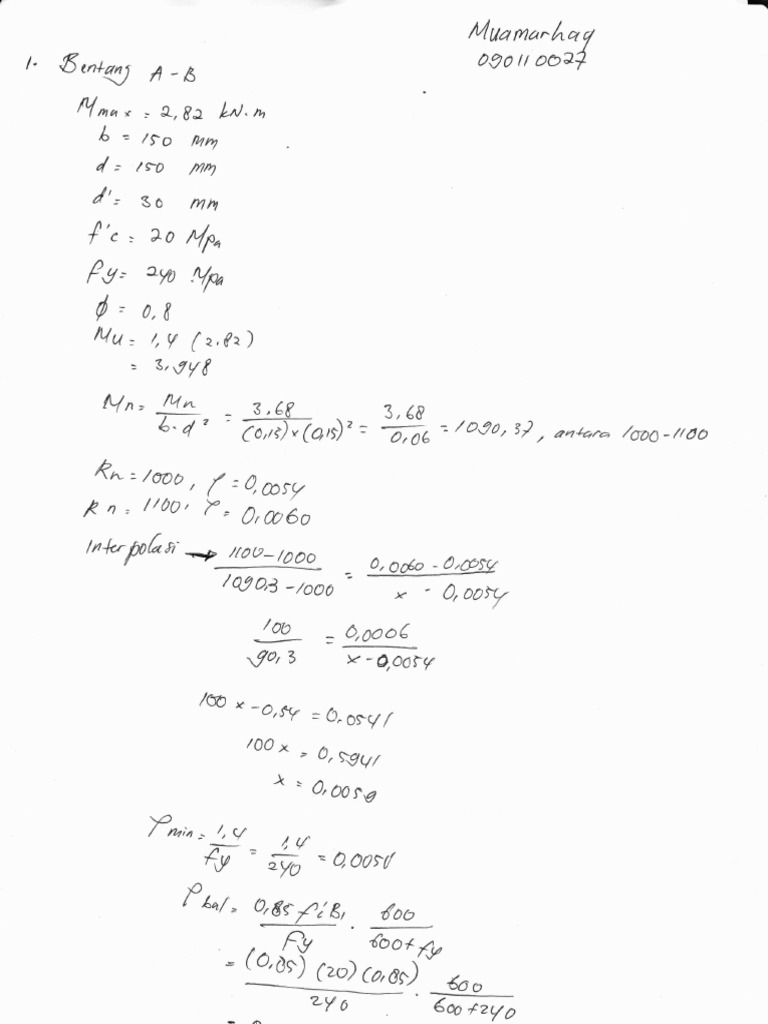 Muamarhaq
090110027
1. Bentang A-B
Mmax = 2,82 kN.m
b = 150 mm
d = 150 mm
d' = 30 mm
f'c = 20 Mpa
fy = 240 Mpa
ϕ = 0,8
Mu = 1,4 (2.82)
= 3,948
Mn = Mn / b.d² = 3,68 / (0,15)×(0,15)² = 3,68 / 0,06 = 1090,37, antara 1000-1100
Rn = 1000, ρ = 0,0054
Rn = 1100, ρ = 0,0060
Interpolasi → 1100-1000 / 1090.3-1000 = 0,0060-0,0054 / x - 0,0054
100 / 90,3 = 0,0006 / x-0,0054
100x-0,54 = 0,0541
100x = 0,5941
x = 0,0059
ρmin = 1,4 / fy = 1,4 / 240 = 0,0058
ρbal = 0,85 f'c B1 / Fy . 600 / 600+fy
= (0,85) (20) (0,85) / 240 . 600 / 600+240